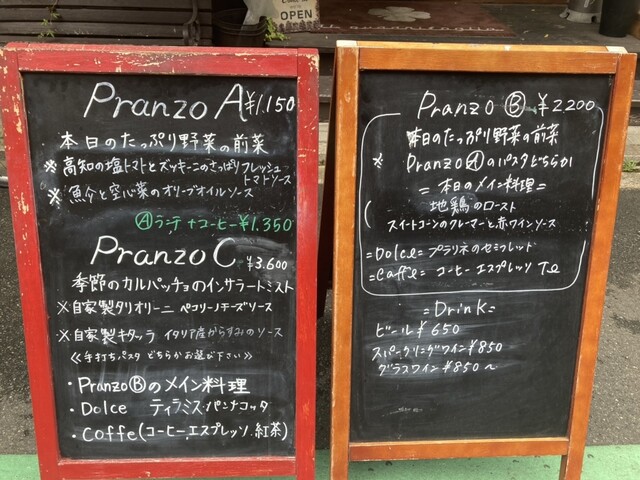 OPEN
Pranzo A ¥1.150
本日のたっぷり野菜の前菜
※高知の塩トマトとズッキーニのさっぱりフレッシュ
トマトソース
※魚介と空心菜のオリーブオイルソース
Ⓐランチ+コーヒー¥1.350
Pranzo C ¥3.600
季節のカルパッチョのインサラートミスト
※自家製タリオリーニ ペコリーノチーズソース
※自家製キタッラ イタリア産からすみのソース
≪手打ちパスタ どちらかお選び下さい≫
・PranzoⒷのメイン料理
・Dolce ティラミス・パンナコッタ
・Coffe(コーヒー.エスプレッソ.紅茶)
Pranzo Ⓑ ¥2200
本日のたっぷり野菜の前菜
※ PranzoⒶのパスタどちらか
=本日のメイン料理=
地鶏のロースト
スイートコーンのクレーマーと赤ワインソース
=Dolce= プラリネのセミフレッド
=Caffe= コーヒー エスプレッソ Te
=Drink=
ビール¥650
スパークリングワイン¥850
グラスワイン¥850〜